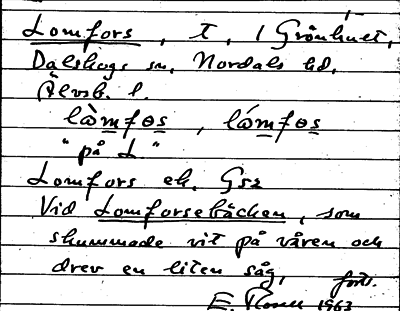 Lomfors, t, i Grönhult,
Dalskogs sn, Nordals hd,
Älvsb. l.
lò̀mfos, lómfos
"på L"
Lomfors ek. G52
Vid Lomforsebäcken, som
skummade vit på våren och
drev en liten såg, forts.
E. 1963